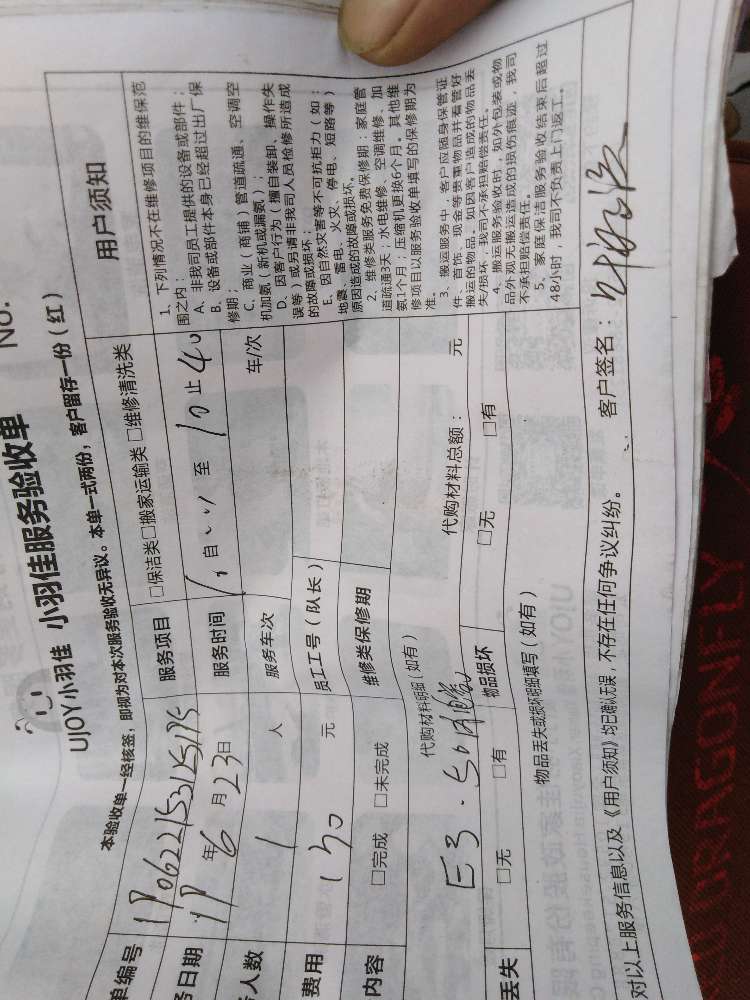 NO.
UJOY小羽佳 小羽佳服务验收单
本验收单一经核签，即视为对本次服务验收无异议。本单一式两份，客户留存一份（红）
单编号 服务项目 □保洁类□搬家运输类 □维修清洗类
务日期 年 6 月 23 日 服务时间 自 至 10 止 40
人数 1 人 服务车次 车/次
费用 元 员工工号（队长）
内容 □完成 □未完成 维修类保修期
代购材料明细（如有） 代购材料总额： 元
E3.
丢失 □无 □有 物品损坏 □无 □有
物品丢失或损坏明细填写（如有）
用户须知
1、下列情况不在维修项目的维保范
围之内：
A、非我司员工提供的设备或部件；
B、设备或部件本身已经超过出厂保
修期；
C、商业（商铺）管道疏通、空调空
机加氨（新机或漏氨）；
D、因客户行为（擅自装卸、操作失
误等）或另请非我司人员检修所造成
的故障或损坏；
E、因自然灾害等不可抗拒力（如：
地震、雷电、火灾、停电、短路等）
原因造成的故障或损坏.
2、维修类服务免费保修期：家庭管
道疏通3天；水电维修、空调维修、加
氨1个月；压缩机更换6个月。其他维
修项目以服务验收单填写的保修期为
准。
3、搬运服务中，客户应随身保管证
件、首饰、现金等贵重物品并看管好
搬运的物品。如因客户造成的物品丢
失/损坏，我司不承担赔偿责任。
4、搬运服务验收时，如外包装或物
品外观无搬运造成的损伤痕迹，我司
不承担赔偿责任。
5、家庭保洁服务验收结束后超过
48小时，我司不负责上门返工。
对以上服务信息以及《用户须知》均已确认无误，不存在任何争议纠纷。 客户签名：
DRAGONFLY